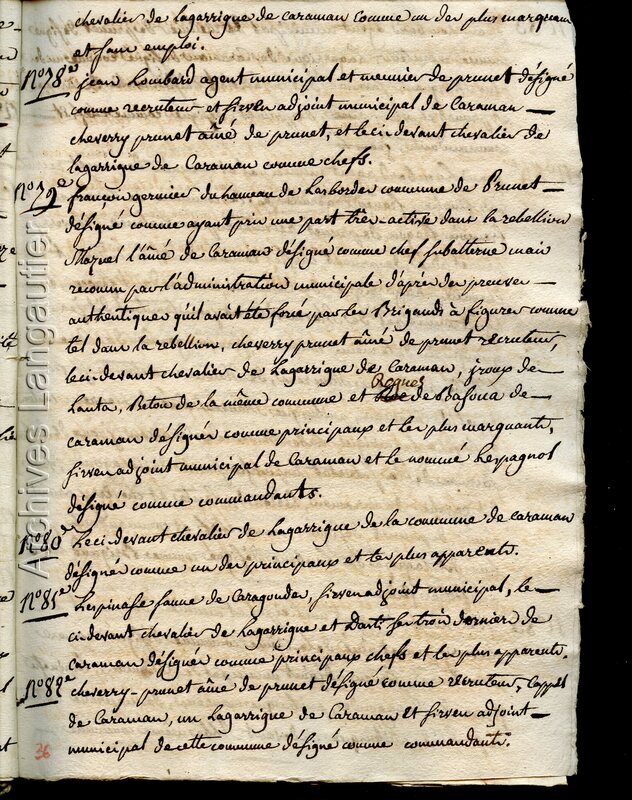 chevalier de Lagarrigue de caraman comme un des plus marquans
et sans emploi.
N°78e jean Lombard agent municipal et meunier de prunet désigné
comme recruteur et sirven adjoint municipal de Caraman —
cheverry prunet aîné de prunet, et leci-devant chevalier de
lagarrigue de Caraman comme chefs.
N°79e françois germier du hameau de Lasbordes commune de Prunet —
désigné comme ayant pris une part très-active dans la rebellion
l'âmé de Caraman désigné comme chef subalterne mais
reconnu par l'administration municipale d'après des preuves —
authentiques qu'il avait été forcé par les Brigands à figurer comme
tel dans la rebellion, cheverry prunet aîné de prunet recruteur,
leci-devant chevalier de Lagarrigue de Caraman, joux de
Lanta, Beton de la même commune et Roques de Basoua de —
caraman désignés comme principaux et les plus marquants,
sirven adjoint municipal de Caraman et le nommé Lespagnol
désigné comme commandants.
N°80e Leci-devant chevalier de Lagarrigue de la commune de caraman
désigné comme un des principaux et les plus apparents.
N°81e Lespinasse faune de Caragoudes, sirven adjoint municipal, le
ci-devant chevalier de Lagarrigue et Darti, ses trois dernier de
caraman désignés comme principaux chefs et les plus apparents.
N°82e cheverry-prunet aîné de prunet désigné comme recruteur, Cappel
de Caraman, un Lagarrigue de Caraman et sirven adjoint —
municipal de cette commune désigné comme commandants.
36
Archives Langautier